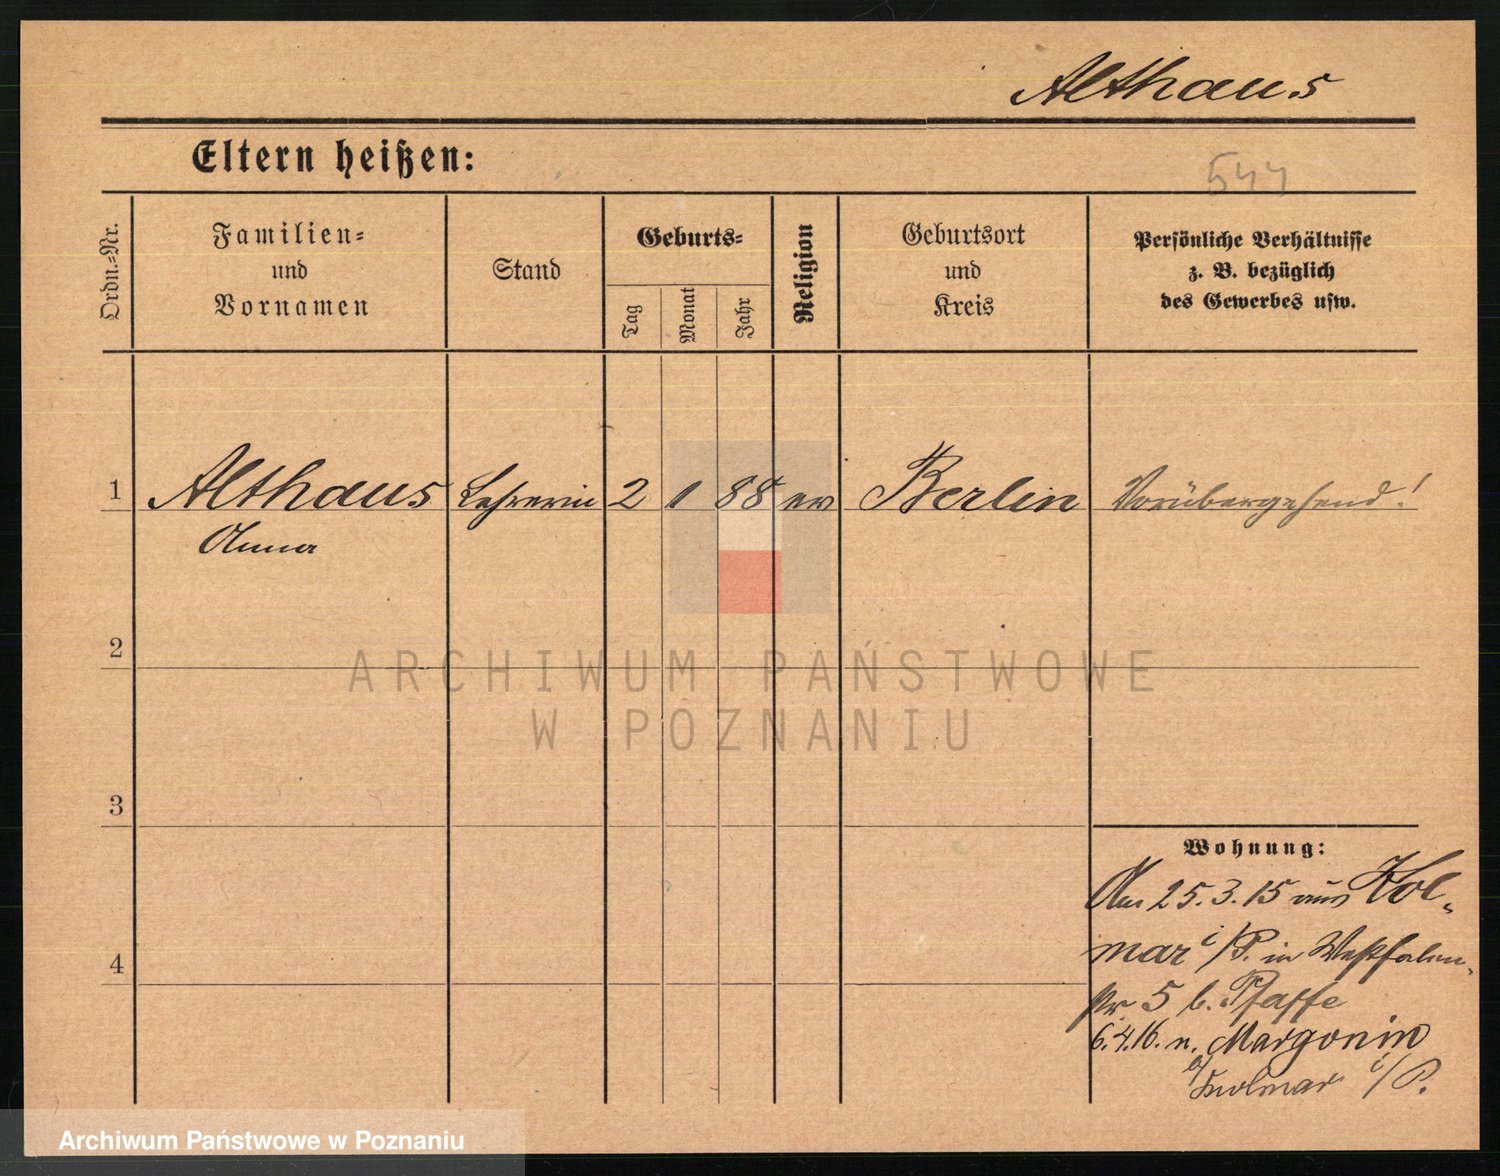 Althaus
Eltern heißen:
544
Ordn.=Nr.
Familien=
und
Vornamen
Stand
Geburts=
Tag
Monat
Jahr
Religion
Geburtsort
und
Kreis
Persönliche Verhältnisse
z. B. bezüglich
des Gewerbes usw.
1 Althaus Lehrerin 2 1 88 ev Berlin Vorübergehend!
Anna
2
ARCHIWUM PAŃSTWOWE
W POZNANIU
3
Wohnung:
Am 25.3.15 aus Kol=
4
mar i/P. in Westfalen=
str 5 b. Pfaffe
6.4.16. n. Margonin
Kolmar i/P.
Archiwum Państwowe w Poznaniu